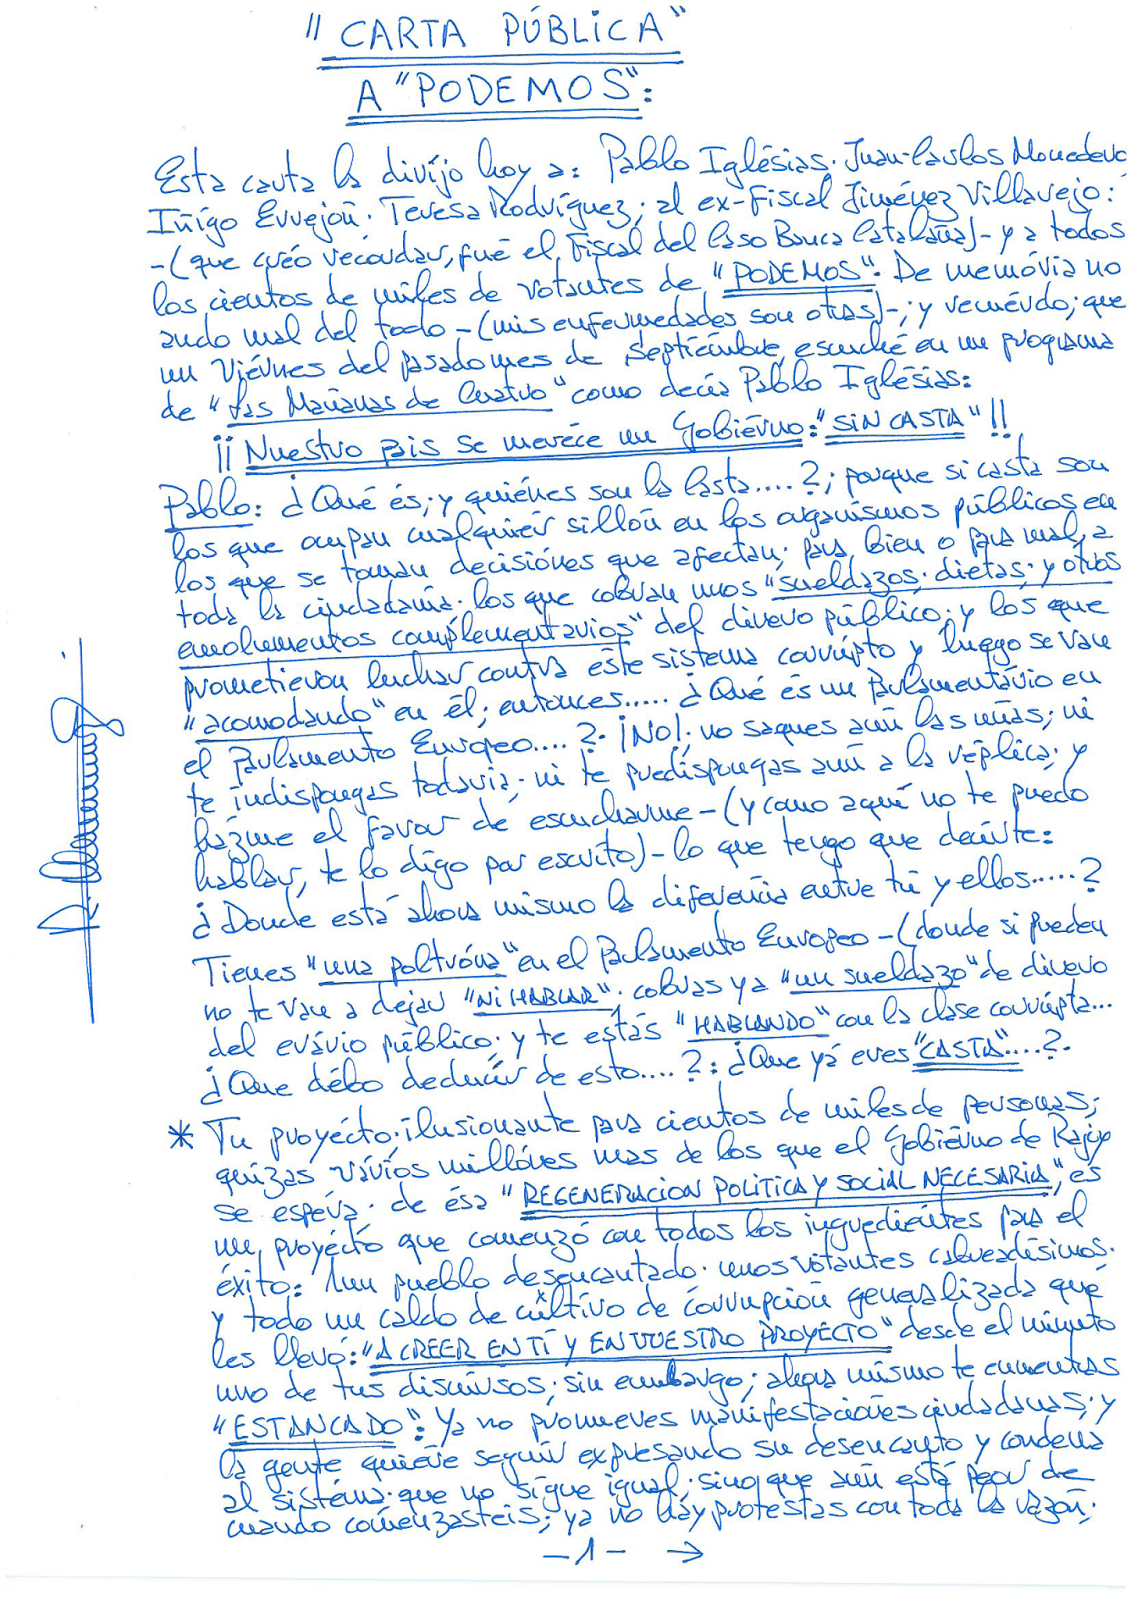 "CARTA PÚBLICA"
A "PODEMOS":
Esta carta la dirijo hoy a: Pablo Iglésias. Juan-Carlos Monedero
Iñigo Errejoń. Teresa Rodríguez; al ex-Fiscal Jiménez Villarejo:
-(que créo recordar, fué el Fiscal del Caso Banca Catalana)- y a todos
los cientos de miles de votantes de "PODEMOS". De memória no
ando mal del todo -(mis enfermedades son otras)-; y recuérdo; que
un Viérnes del pasado mes de Septiémbre, escuché en un programa
de "Las Mañanas de Cuatro" como decía Pablo Iglésias:
¡¡Nuestro pais se meréce un Gobiérno: "SIN CASTA"!!
Pablo: ¿Qué és; y quiénes son la Casta....?; porque si casta son
los que ocupan cualquiér sillón en los organísmos públicos en
los que se toman decisiónes que afectan; para bien o para mal, a
toda la ciudadania. los que cobran unos "sueldazos; dietas; y otros
emolumentos complementarios" del dinero público; y los que
prometieron luchar contra este sistema corrúpto y luego se van
"acomodando" en él; entonces..... ¿Qué és un Parlamentário en
el Parlamento Européo....?. ¡NO!; no saques aún las uñas; ni
te indispongas todavia; ni te predispongas aún a la réplica; y
házme el favor de escucharme -(y como aquí no te puedo
hablar, te lo digo por escrito)- lo que tengo que decirte:
¿Donde está ahora mismo la diferencia entre tú y ellos.....?
Tienes "una poltróna" en el Parlamento Européo -(donde si pueden
no te van a dejar "NI HABLAR"; cobras ya "un sueldazo" de dinero
del erário público; y te estás "HABLANDO" con la clase corrúpta...
¿Que débo deducír de esto....?: ¿Que yá eres "CASTA"....?.
* Tu proyécto; ilusionante para cientos de miles de personas;
quizas vários millónes mas de los que el Gobiérno de Rajoy
se espéra; de ésa "REGENERACION POLITICA Y SOCIAL NECESARIA", és
un proyécto que comenzó con todos los ingrediéntes para el
éxito: Aun pueblo desencantado. unos votantes cabreadísimos.
y todo un caldo de cultivo de corrupcion generalizada que
les llevó: "A CREER EN TÍ Y EN VUESTRO PROYÉCTO" desde el minuto
uno de tus discursos; sin embargo; ahora mismo te encuentras
"ESTANCADO": Ya no promueves manifestaciónes ciudadanas; y
la gente quiére seguir expresando su desencanto y condena
al sistéma; que no sigue igual; sino que aún está peor de
cuando coménzasteis; ya no háy protéstas con toda la razón;
-1- →